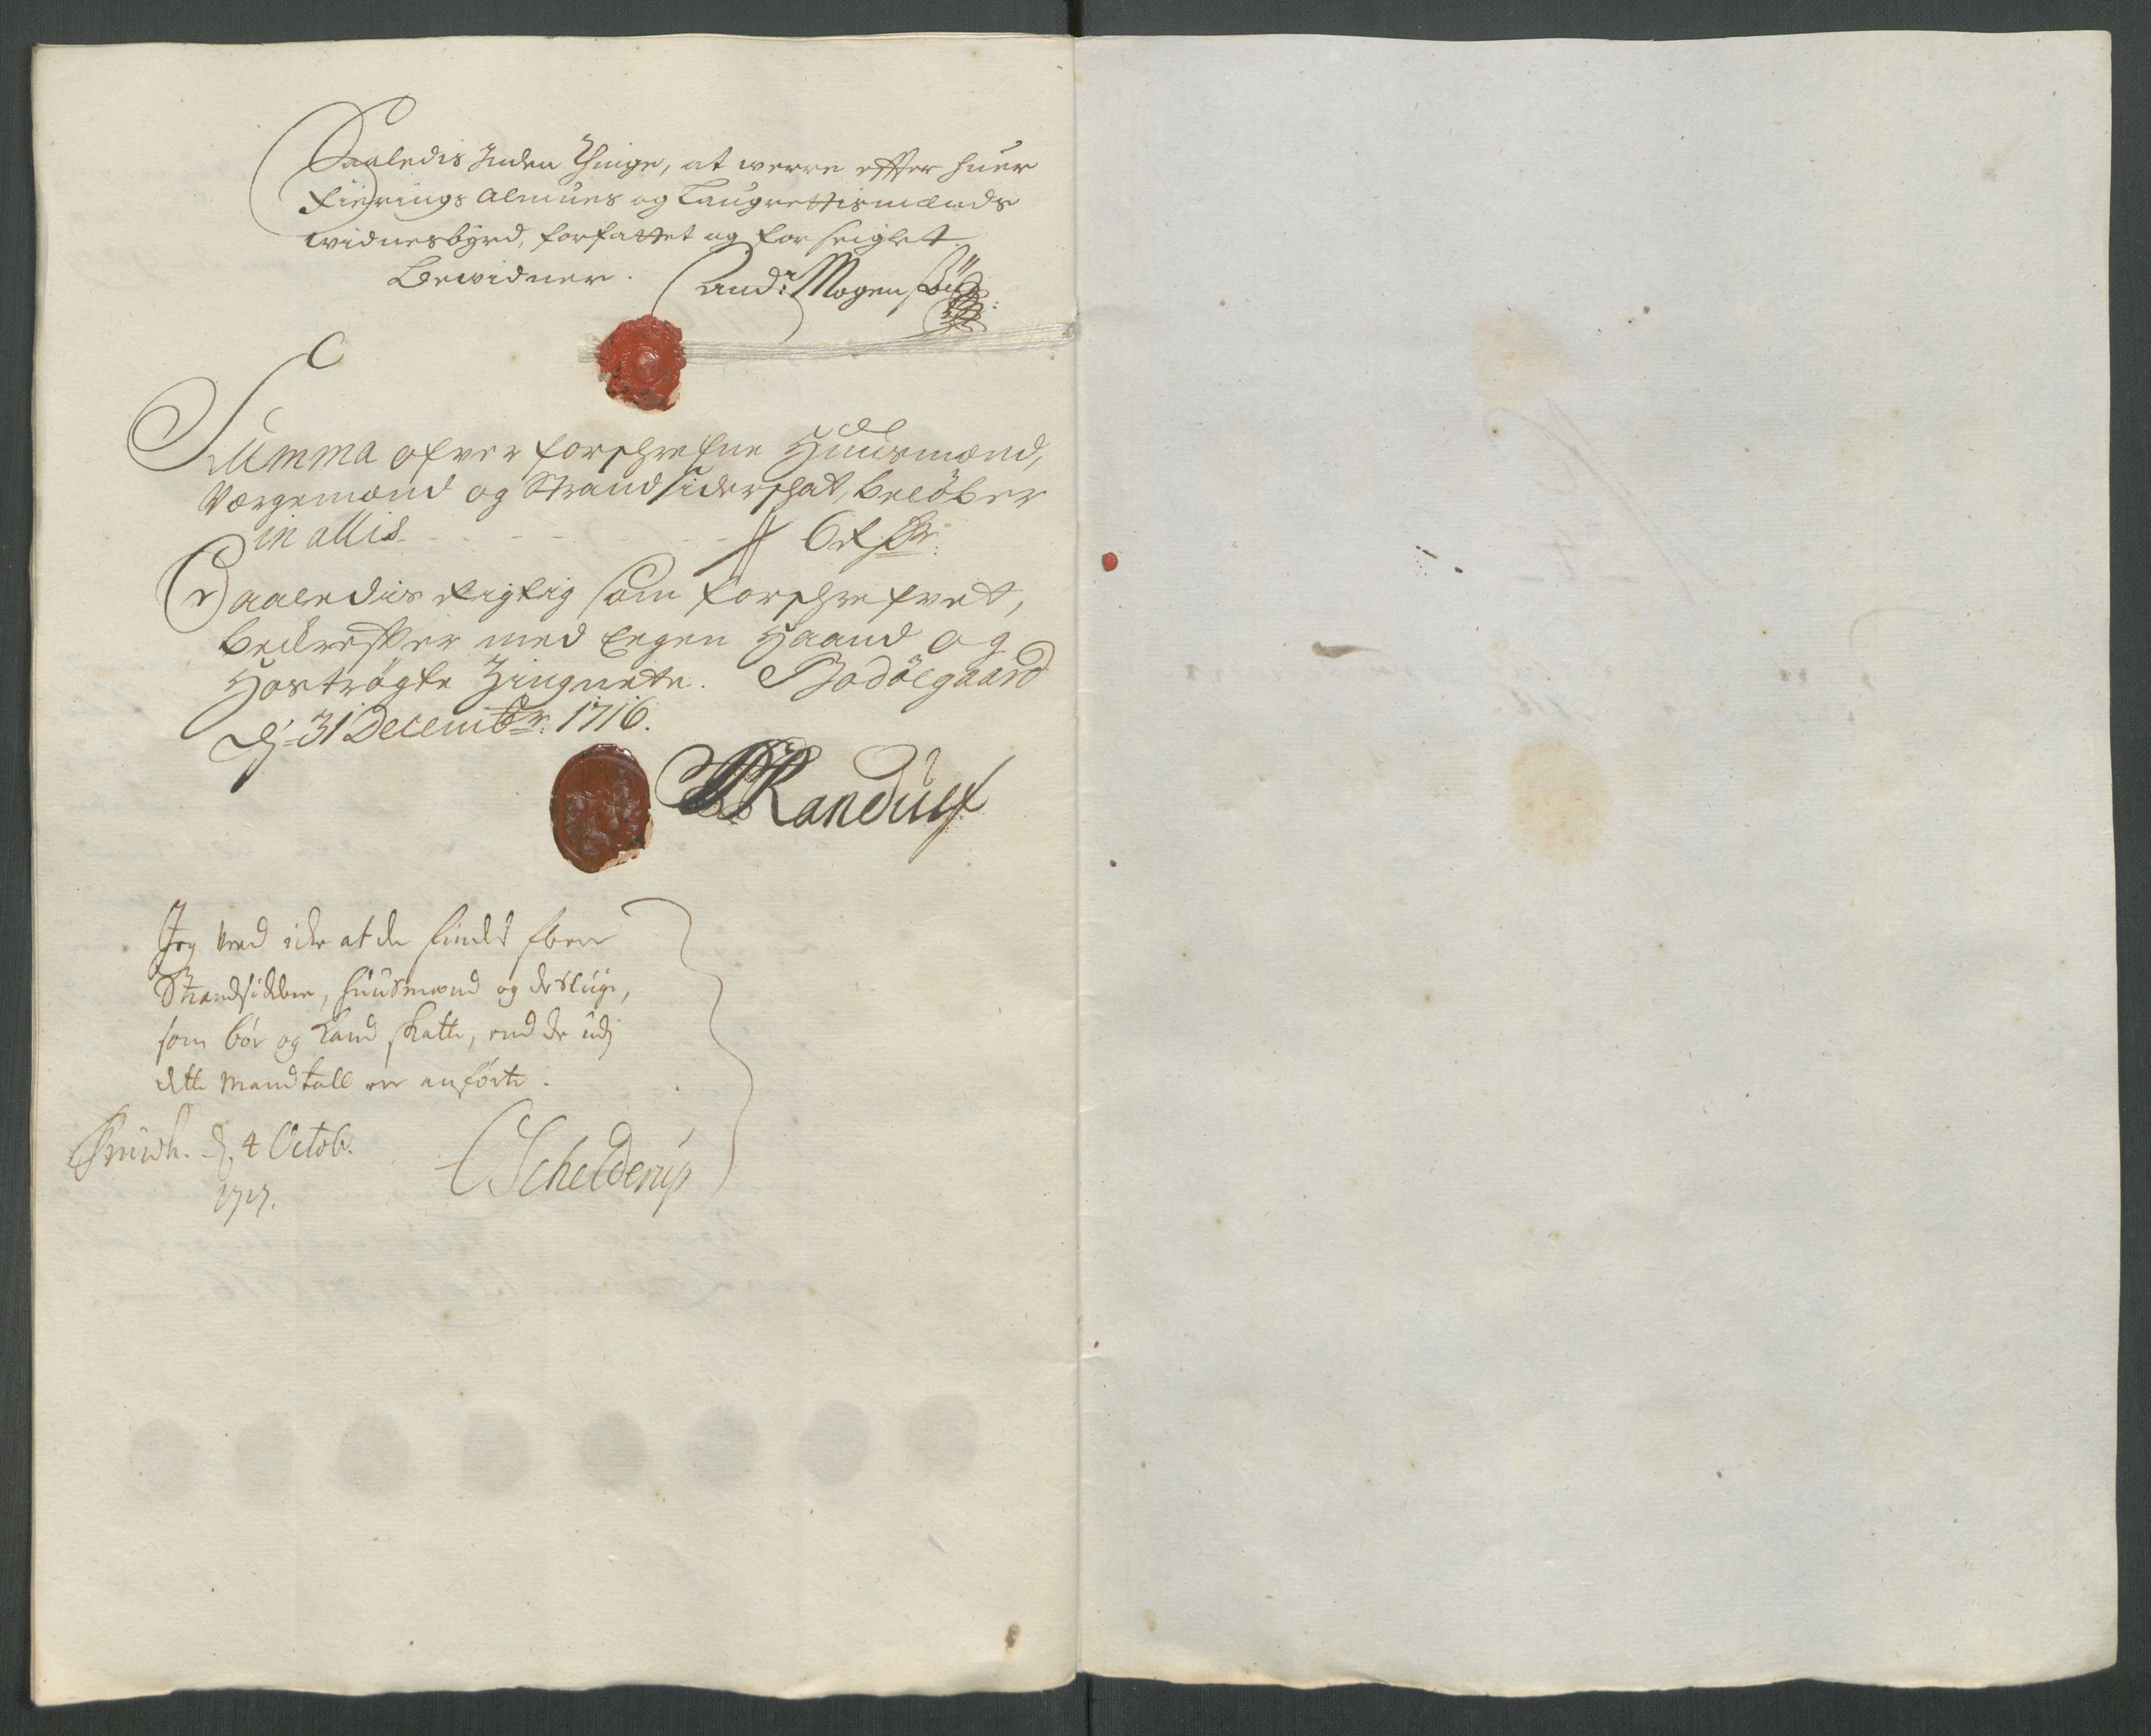 Saaledis Inden Thinge, at werre effter huer
Fierings Almues og Laugrettismænds
widnesbyrd, forfattet og forseiglet
Bewidner. And: Mogens
Summa ofver forschrefne Huusmænd,
Værgemænd og Strandsiderschat, beløber
in allis
Saaledis rigtig som forschrefvet,
bekrefter med Eegen Haand og
Hoströgte Zingnette. Bodöegaard
dj 31 Decembr: 1716.
Randulf
Jeg veed icke at der findes flere
Strandsiddere, huusmænd og deslige,
som bör og kand skatte, end de udj
dette Mandtall er anförte.
d. 4 Octob.
1717.
Schelderup